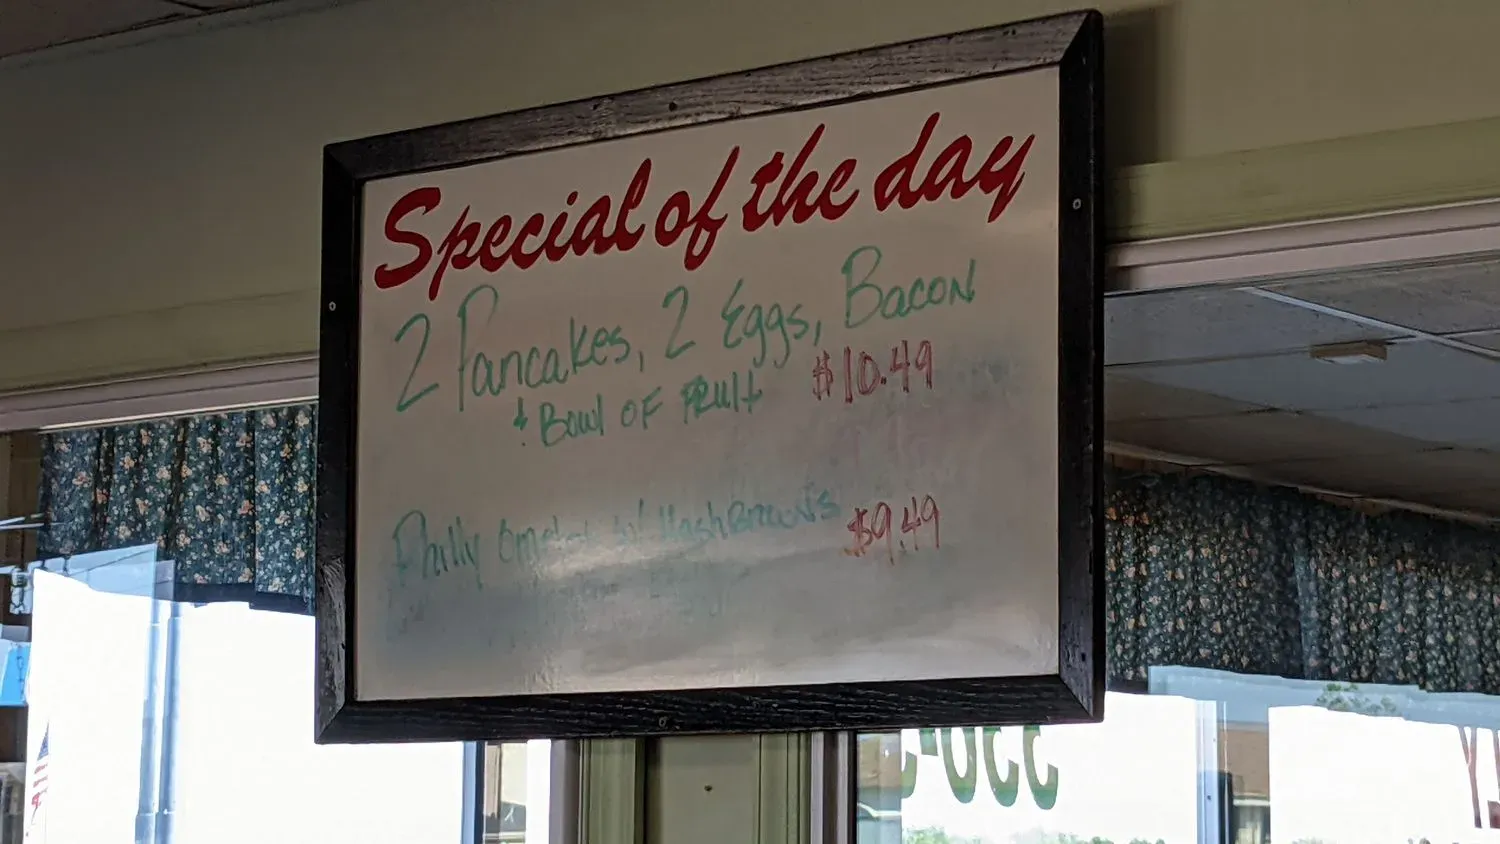 Special of the day
2 Pancakes, 2 Eggs, Bacon
& Bowl OF FRUIt $10.49
Philly Omelet w/ HashBrowns $9.49